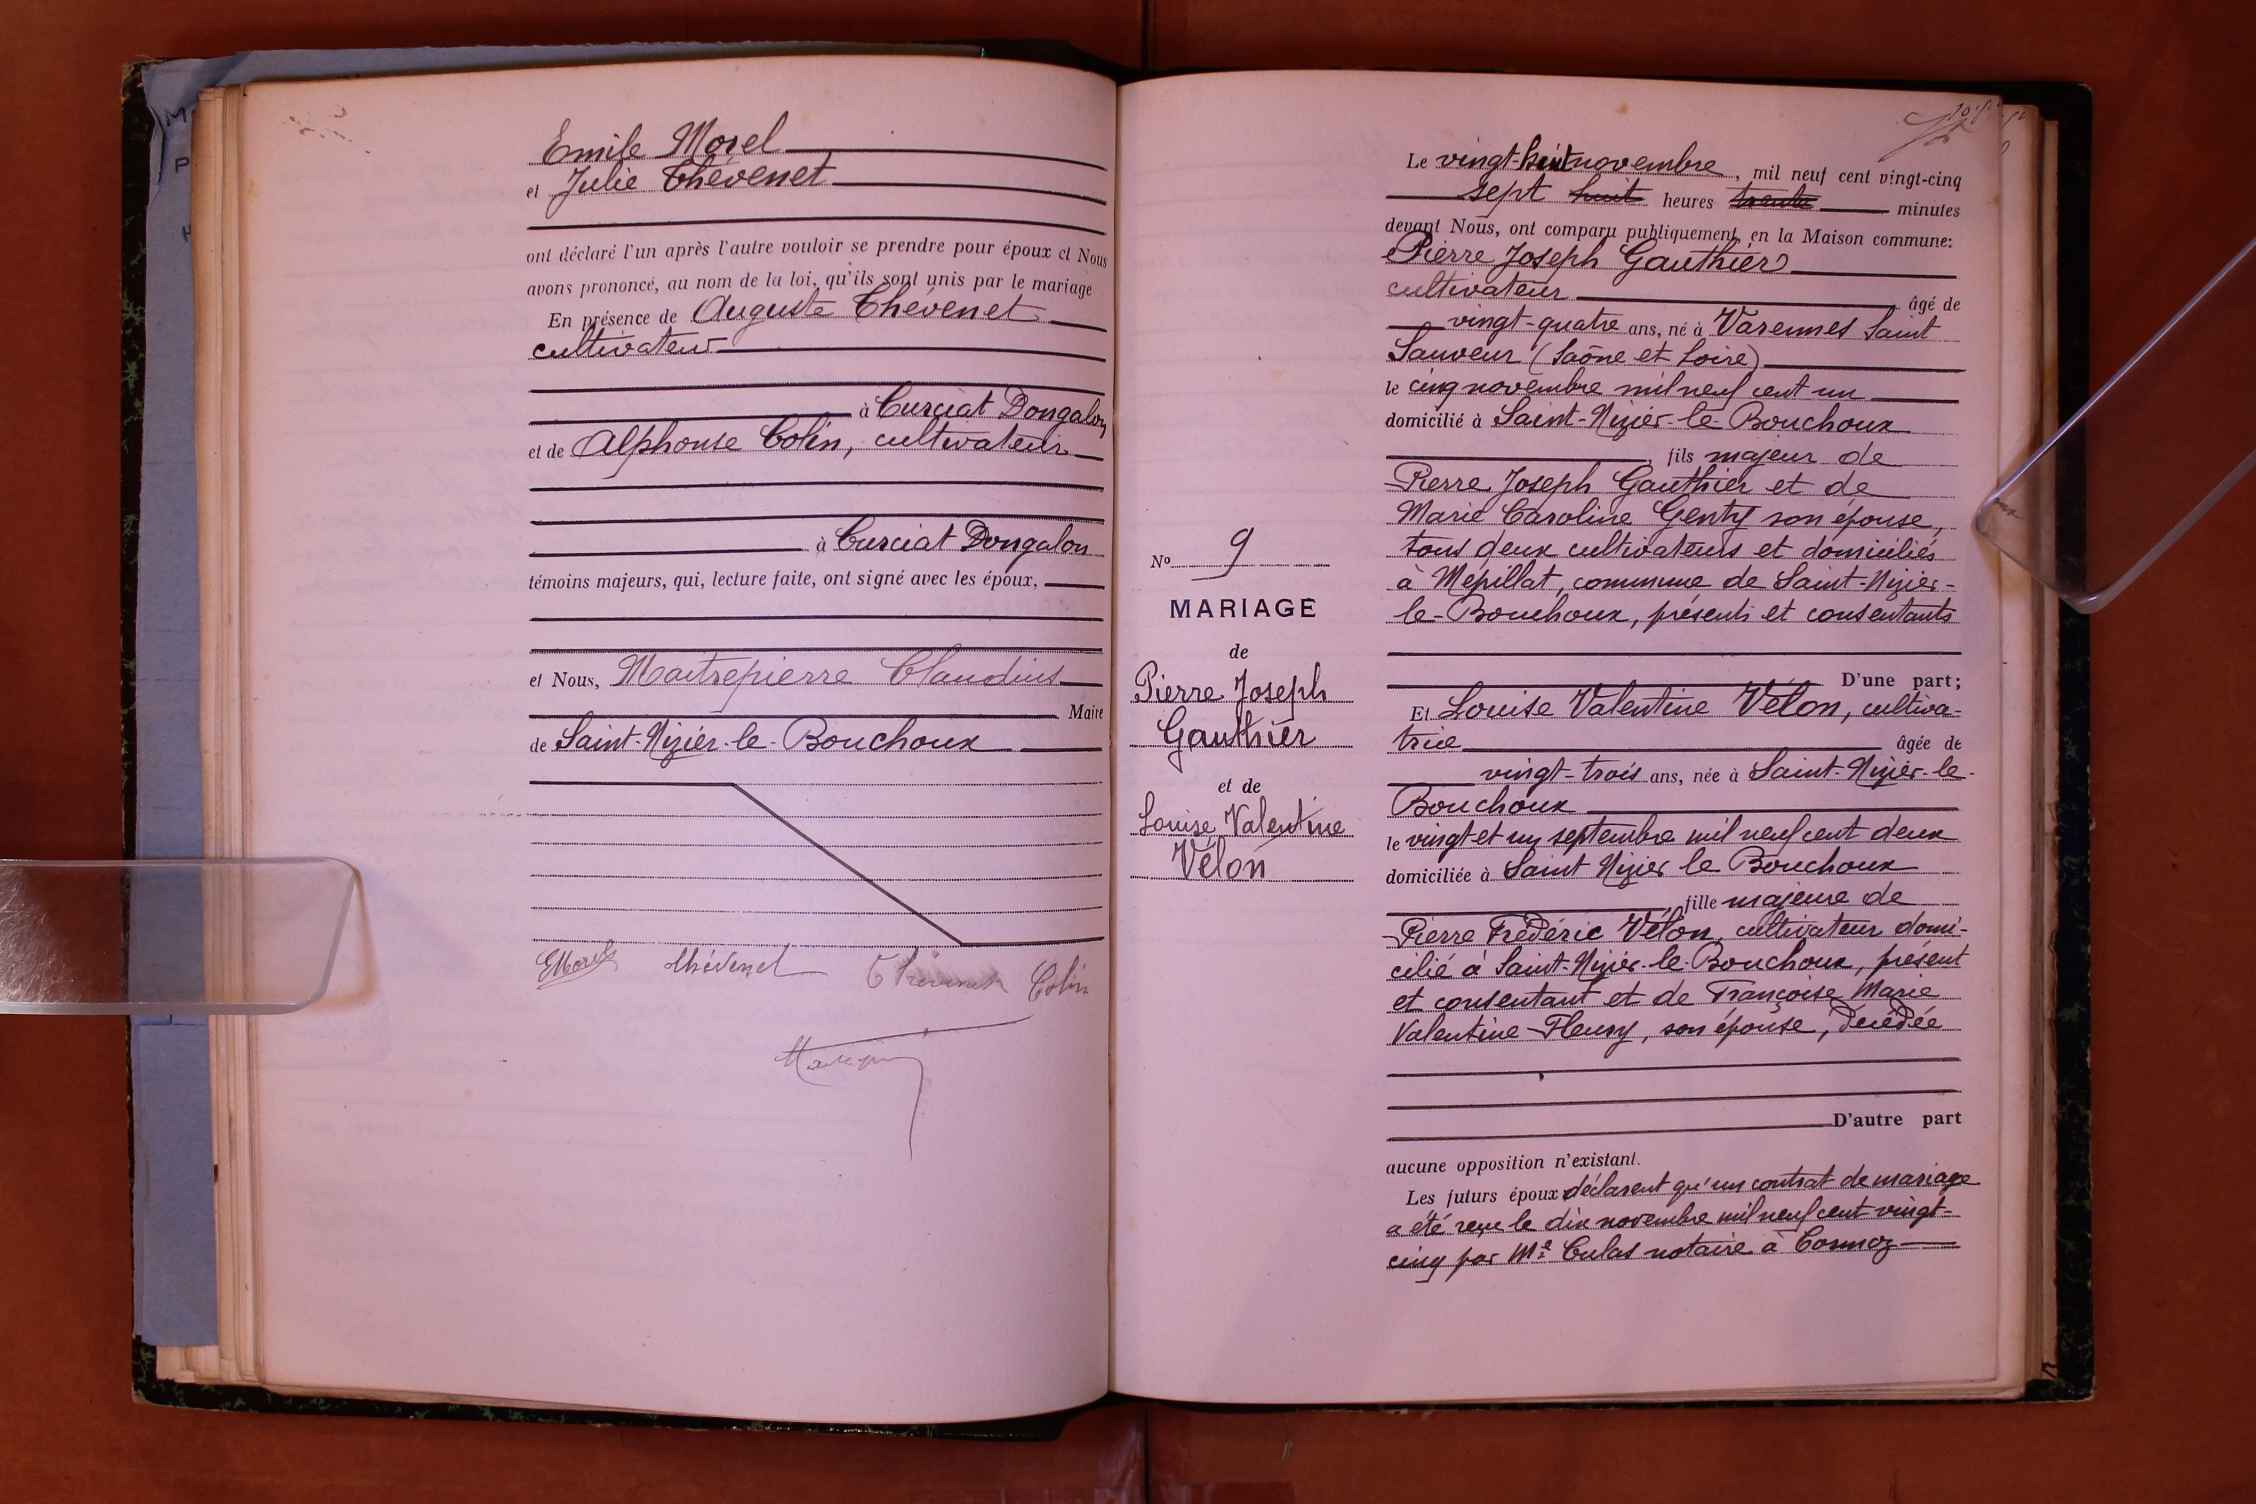 Emile Morel
et Julie Thévenet
ont déclaré l'un après l'autre vouloir se prendre pour époux et Nous
avons prononcé, au nom de la loi, qu'ils sont unis par le mariage
En présence de Auguste Thévenet
cultivateur
à Curciat Dongalon
et de Alphonse Colin, cultivateur
à Curciat Dongalon
témoins majeurs, qui, lecture faite, ont signé avec les époux,
et Nous, Maitrepierre Claudius
Maire
de Saint-Nizier-le-Bouchoux
EMorel Thévenet Thévenet Colin
N° 9
MARIAGE
de
Pierre Joseph
Gauthier
et de
Louise Valentine
Vélon
Le vingt-huit novembre, mil neuf cent vingt-cinq
sept huit heures trente minutes
devant Nous, ont comparu publiquement en la Maison commune:
Pierre Joseph Gauthier
cultivateur âgé de
vingt-quatre ans, né à Varennes Saint
Sauveur (Saône et Loire)
le cinq novembre mil neuf cent un
domicilié à Saint-Nizier-le-Bouchoux
, fils majeur de
Pierre Joseph Gauthier et de
Marie Caroline Genty son épouse,
tous deux cultivateurs et domiciliés
à Mépillat, commune de Saint-Nizier-
le-Bouchoux, présents et consentants
D'une part;
Et Louise Valentine Vélon, cultiva-
trice âgée de
vingt-trois ans, née à Saint-Nizier-le-
Bouchoux
le vingt et un septembre mil neuf cent deux
domiciliée à Saint Nizier le Bouchoux
, fille majeure de
Pierre Frédéric Vélon, cultivateur domi-
cilié à Saint-Nizier-le-Bouchoux, présent
et consentant et de Françoise Marie
Valentine Fleury, son épouse, décédée
D'autre part
aucune opposition n'existant.
Les futurs époux déclarent qu'un contrat de mariage
a été reçu le dix novembre mil neuf cent vingt-
cinq par Me Culas notaire à Cormoz